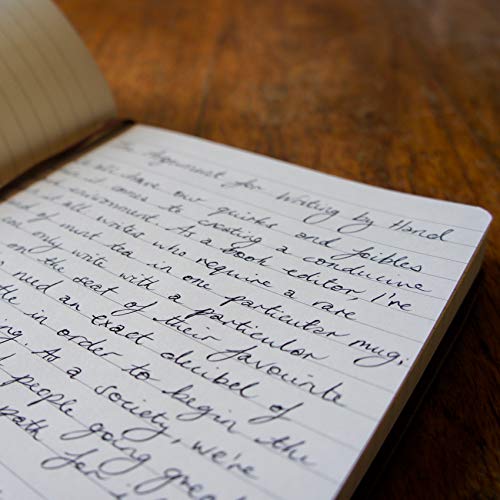 The Argument for Writing by Hand
We all have our quirks and foibles
when it comes to creating a conducive
environment. As a book editor, I've
met all writers who require a rare
of mint tea in one particular mug;
can only write with a particular
on the seat of their favourite
need an exact decibel of
in order to begin the
ing. As a society, we're
people going great
path for